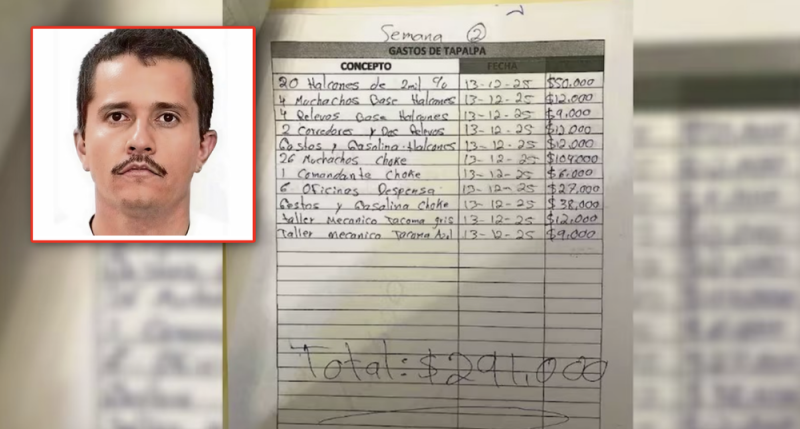 Semana 2
GASTOS DE TAPALPA
CONCEPTO FECHA
20 Halcones de 2mil % 13-12-25 $50.000
4 Muchachos Base Halcones 13-12-25 $12.000
4 Relevos Base Halcones 13-12-25 $9.000
2 Corredores y Dos Relevos 13-12-25 $12.000
Gastos y Gasolina Halcones 13-12-25 $12.000
26 Muchachos Choke 13-12-25 $104.000
1 Comandante Choke 13-12-25 $6.000
6 Oficinas Despensa 13-12-25 $27.000
Gastos y Gasolina Choke 13-12-25 $38.000
Taller Mecanico Tacoma gris 13-12-25 $12.000
Taller mecanico Tacoma 13-12-25 $9.000
Total: $291,000